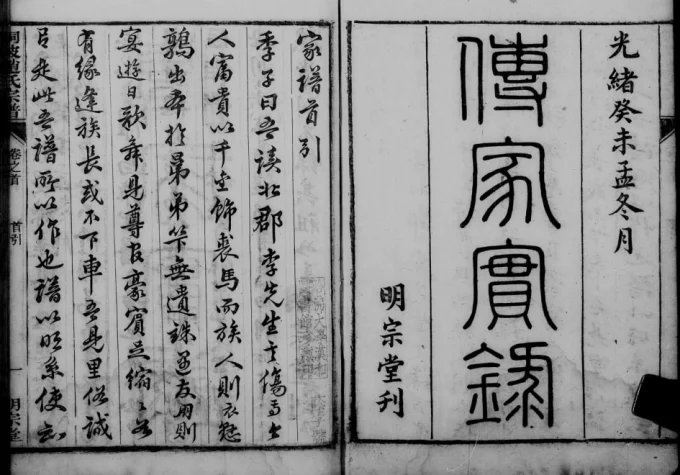 光緒癸未孟冬月
傳家實錄
明宗堂刊
家譜首引
季子曰吾讀北郡李先生之傷今之
人富貴以千金飾裘馬而族人則衣懸
鶉出本於昴弟竿無遺銖遇友朋則
宴遊日歌舞見尊官豪賓足縮
有緣逢族長或不下車吾見里俗誠
呂走此吾譜所以作也譜以明系使知
氏宗譜
卷之首
首引
一
明宗堂